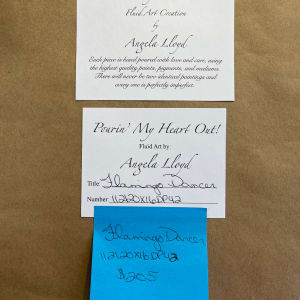 Fluid Art Creation
by
Angela Lloyd
Each piece is hand poured with love and care, using
the highest quality paints, pigments, and mediums.
There will never be two identical paintings and
every one is perfectly imperfect.
Pourin' My Heart Out!
Fluid Art by:
Angela Lloyd
Title: Flamingo Dancer
Number: 112120X16DP42
Flamingo Dancer
112120X16DP42
$205